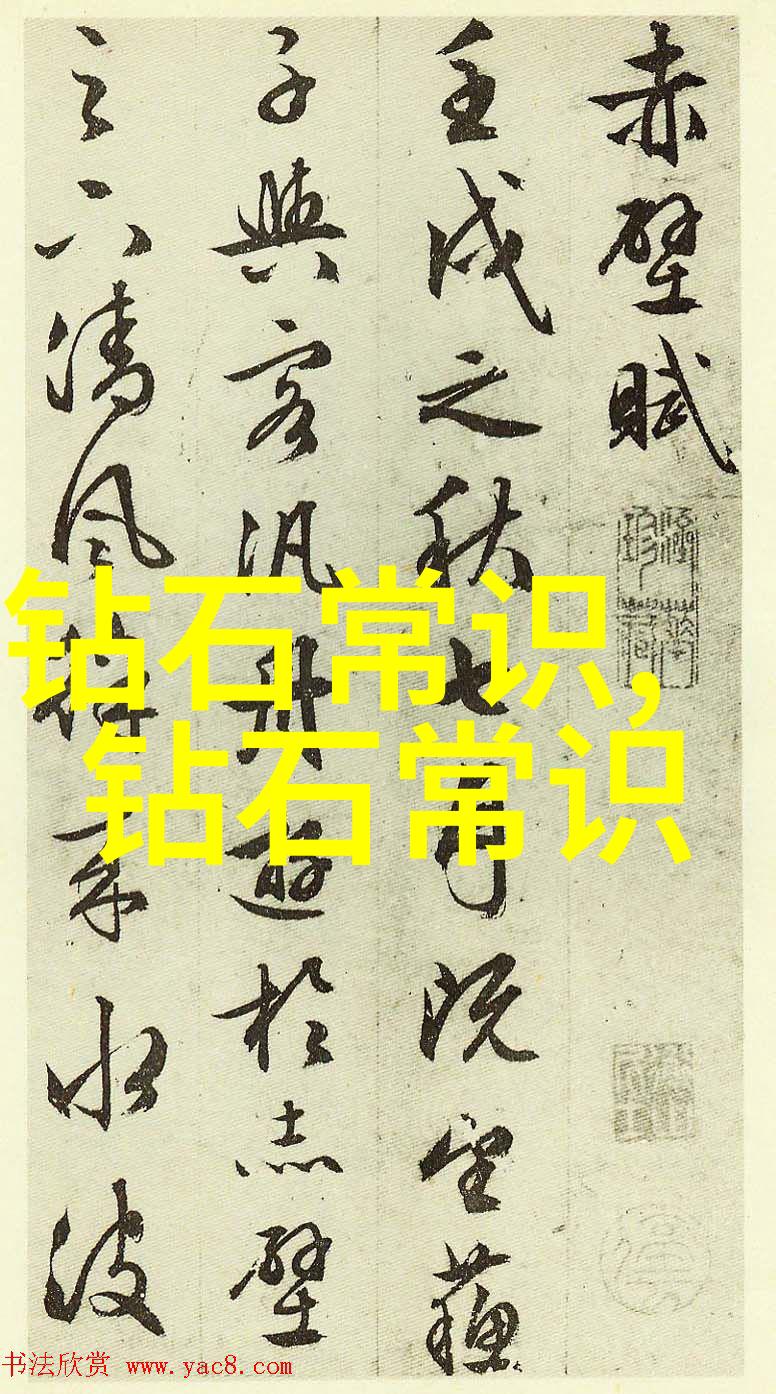 赤壁賦
壬戌之秋七月既望蘇
子與客汎舟遊於赤壁
之下清風徐來水波
钻石常识,
钻石常识
书法欣赏 www.yac8.com